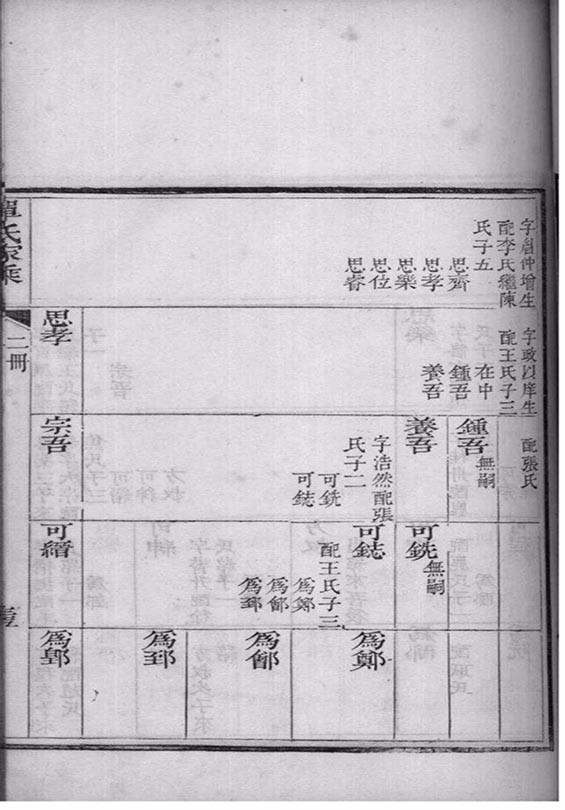 字昌仲增生
配李氏繼陳
氏子五
思齊
思孝
思樂
思位
思睿
字政以庠生
配王氏子三
在中
鍾吾
養吾
配張氏
鍾吾無嗣
養吾
字浩然配張
氏子二
可銑
可鋕
可銑無嗣
可鋕
配王氏子三
爲鄭
爲鄫
爲郅
爲鄭
爲鄫
爲郅
思孝
宗吾
可縉
爲鄂
單氏家乘
二冊